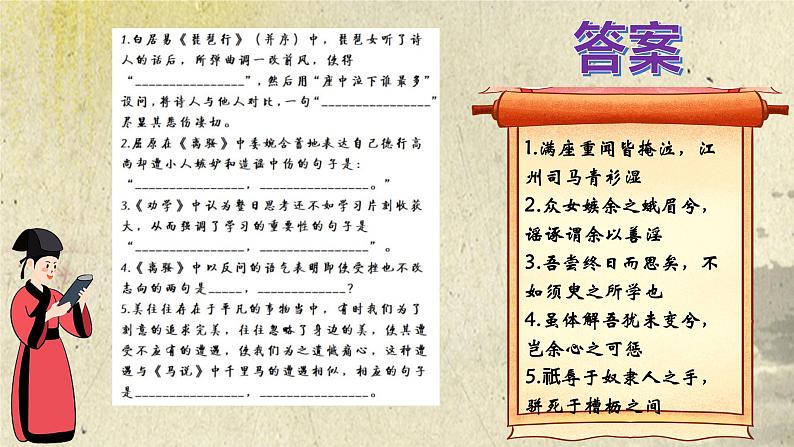 1.白居易《琵琶行》（并序）中，琵琶女听了诗
人的话后，所弹曲调一改前风，使得
“________________”，然后用“座中泣下谁最多”
设问，将诗人与他人对比，一句“________________”
尽显其悲伤凄切。
2.屈原在《离骚》中委婉含蓄地表达自己德行高
尚却遭小人嫉妒和造谣中伤的句子是：
“________________，________________。”
3.《劝学》中认为整日思考还不如学习片刻收获
大，从而强调了学习的重要性的句子是
“________________，________________”。
4.《离骚》中以反问的语气表明即使受挫也不改
志向的两句是_____，_____________？
5.美往往存在于平凡的事物当中，有时我们为了
刻意的追求完美，往往忽略了身边的美，使其遭
受不应有的遭遇，使我们为之遗憾痛心，这种遭
遇与《马说》中千里马的遭遇相似，相应的句子
是________________，________________。
答案
1.满座重闻皆掩泣，江
州司马青衫湿
2.众女嫉余之蛾眉兮，
谣诼谓余以善淫
3.吾尝终日而思矣，不
如须臾之所学也
4.虽体解吾犹未变兮，
岂余心之可惩
5.祇辱于奴隶人之手，
骈死于槽枥之间